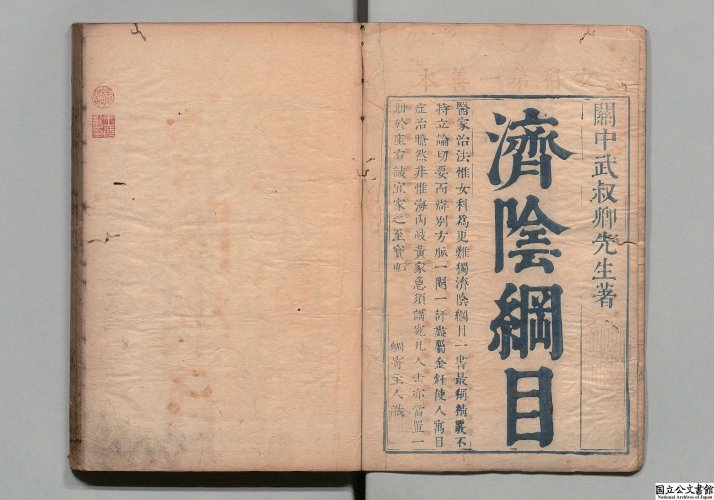 女科第一善本
關中武叔卿先生著
濟陰綱目
醫家治法惟女科爲更難獨濟陰綱目一書最稱精嚴不
特立論切要而辯別方脈一圈一評盡屬金針使人寓目
症治瞭然非惟海內岐黃家急須講究凡人士亦當置一
冊於座右誠宜家之至寶也
蜩寄主人識
国立公文書館
National Archives of Japan